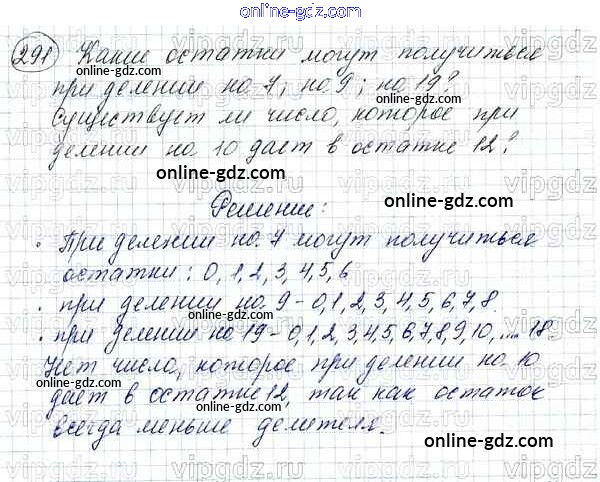 online-gdz.com
291 Какие остатки могут получиться
при делении на 7; на 9; на 19?
Существует ли число, которое при
делении на 10 дает в остатке 12?
Решение:
· При делении на 7 могут получиться
остатки: 0, 1, 2, 3, 4, 5, 6
· при делении на 9 - 0, 1, 2, 3, 4, 5, 6, 7, 8.
· при делении на 19 - 0, 1, 2, 3, 4, 5, 6, 7, 8, 9, 10, .... 18
Нет числа, которое при делении на 10
дает в остатке 12, так как остаток
всегда меньше делителя.
online-gdz.com
online-gdz.com
online-gdz.com
online-gdz.com
online-gdz.com
online-gdz.com
online-gdz.com
online-gdz.com
vipgdz
vipgdz.com